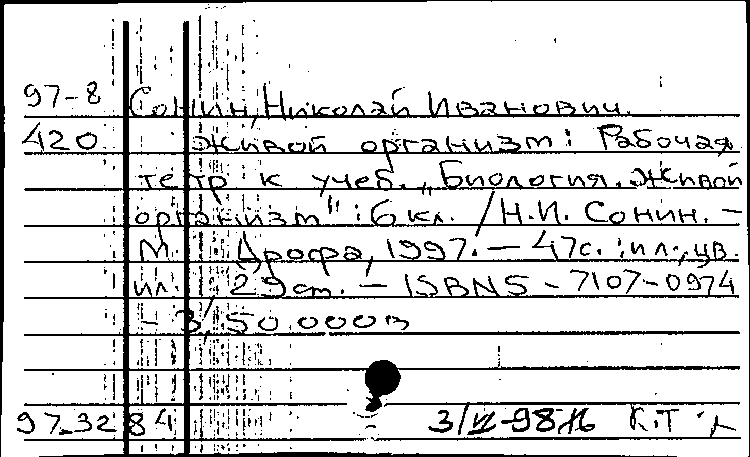 97-8 Сонин, Николай Иванович.
420 Живой организм: Рабочая
тетр к учеб. „Биология. Живой
организм": 6 кл. / Н.И. Сонин. -
М. Дрофа, 1997. - 47с.: ил., цв.
ил. 29 cm. - ISBN 5 - 7107-0974
- 3, 50.000 в
97-3284 3/VI-98 К.Т